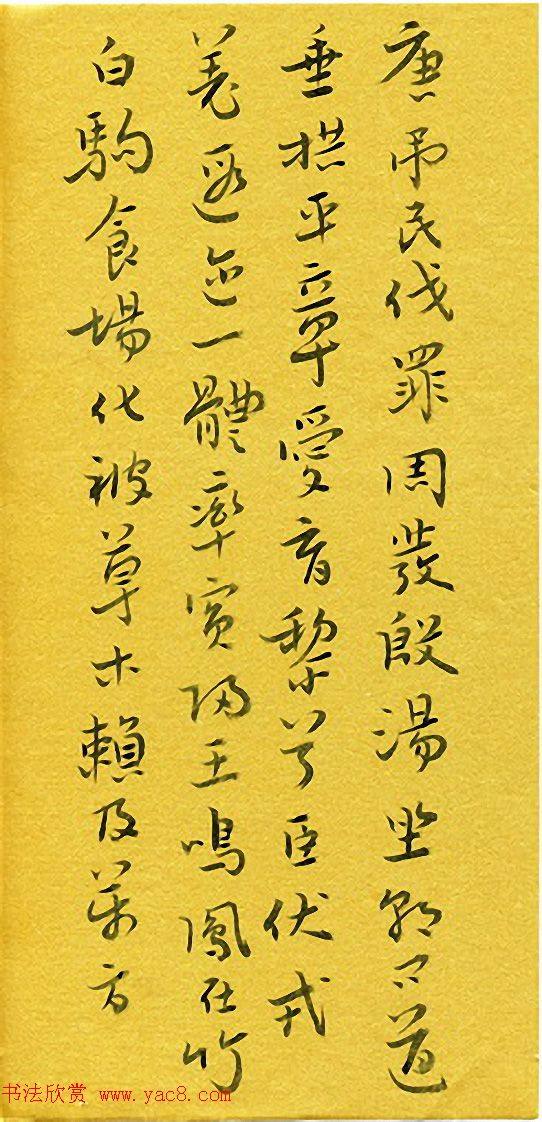 唐吊民伐罪周發殷湯坐朝问道
垂拱平章愛育黎首臣伏戎
羌遐迩一體率賓归王鳴鳳在竹
白駒食場化被草木賴及万方
书法欣赏 www.yac8.com